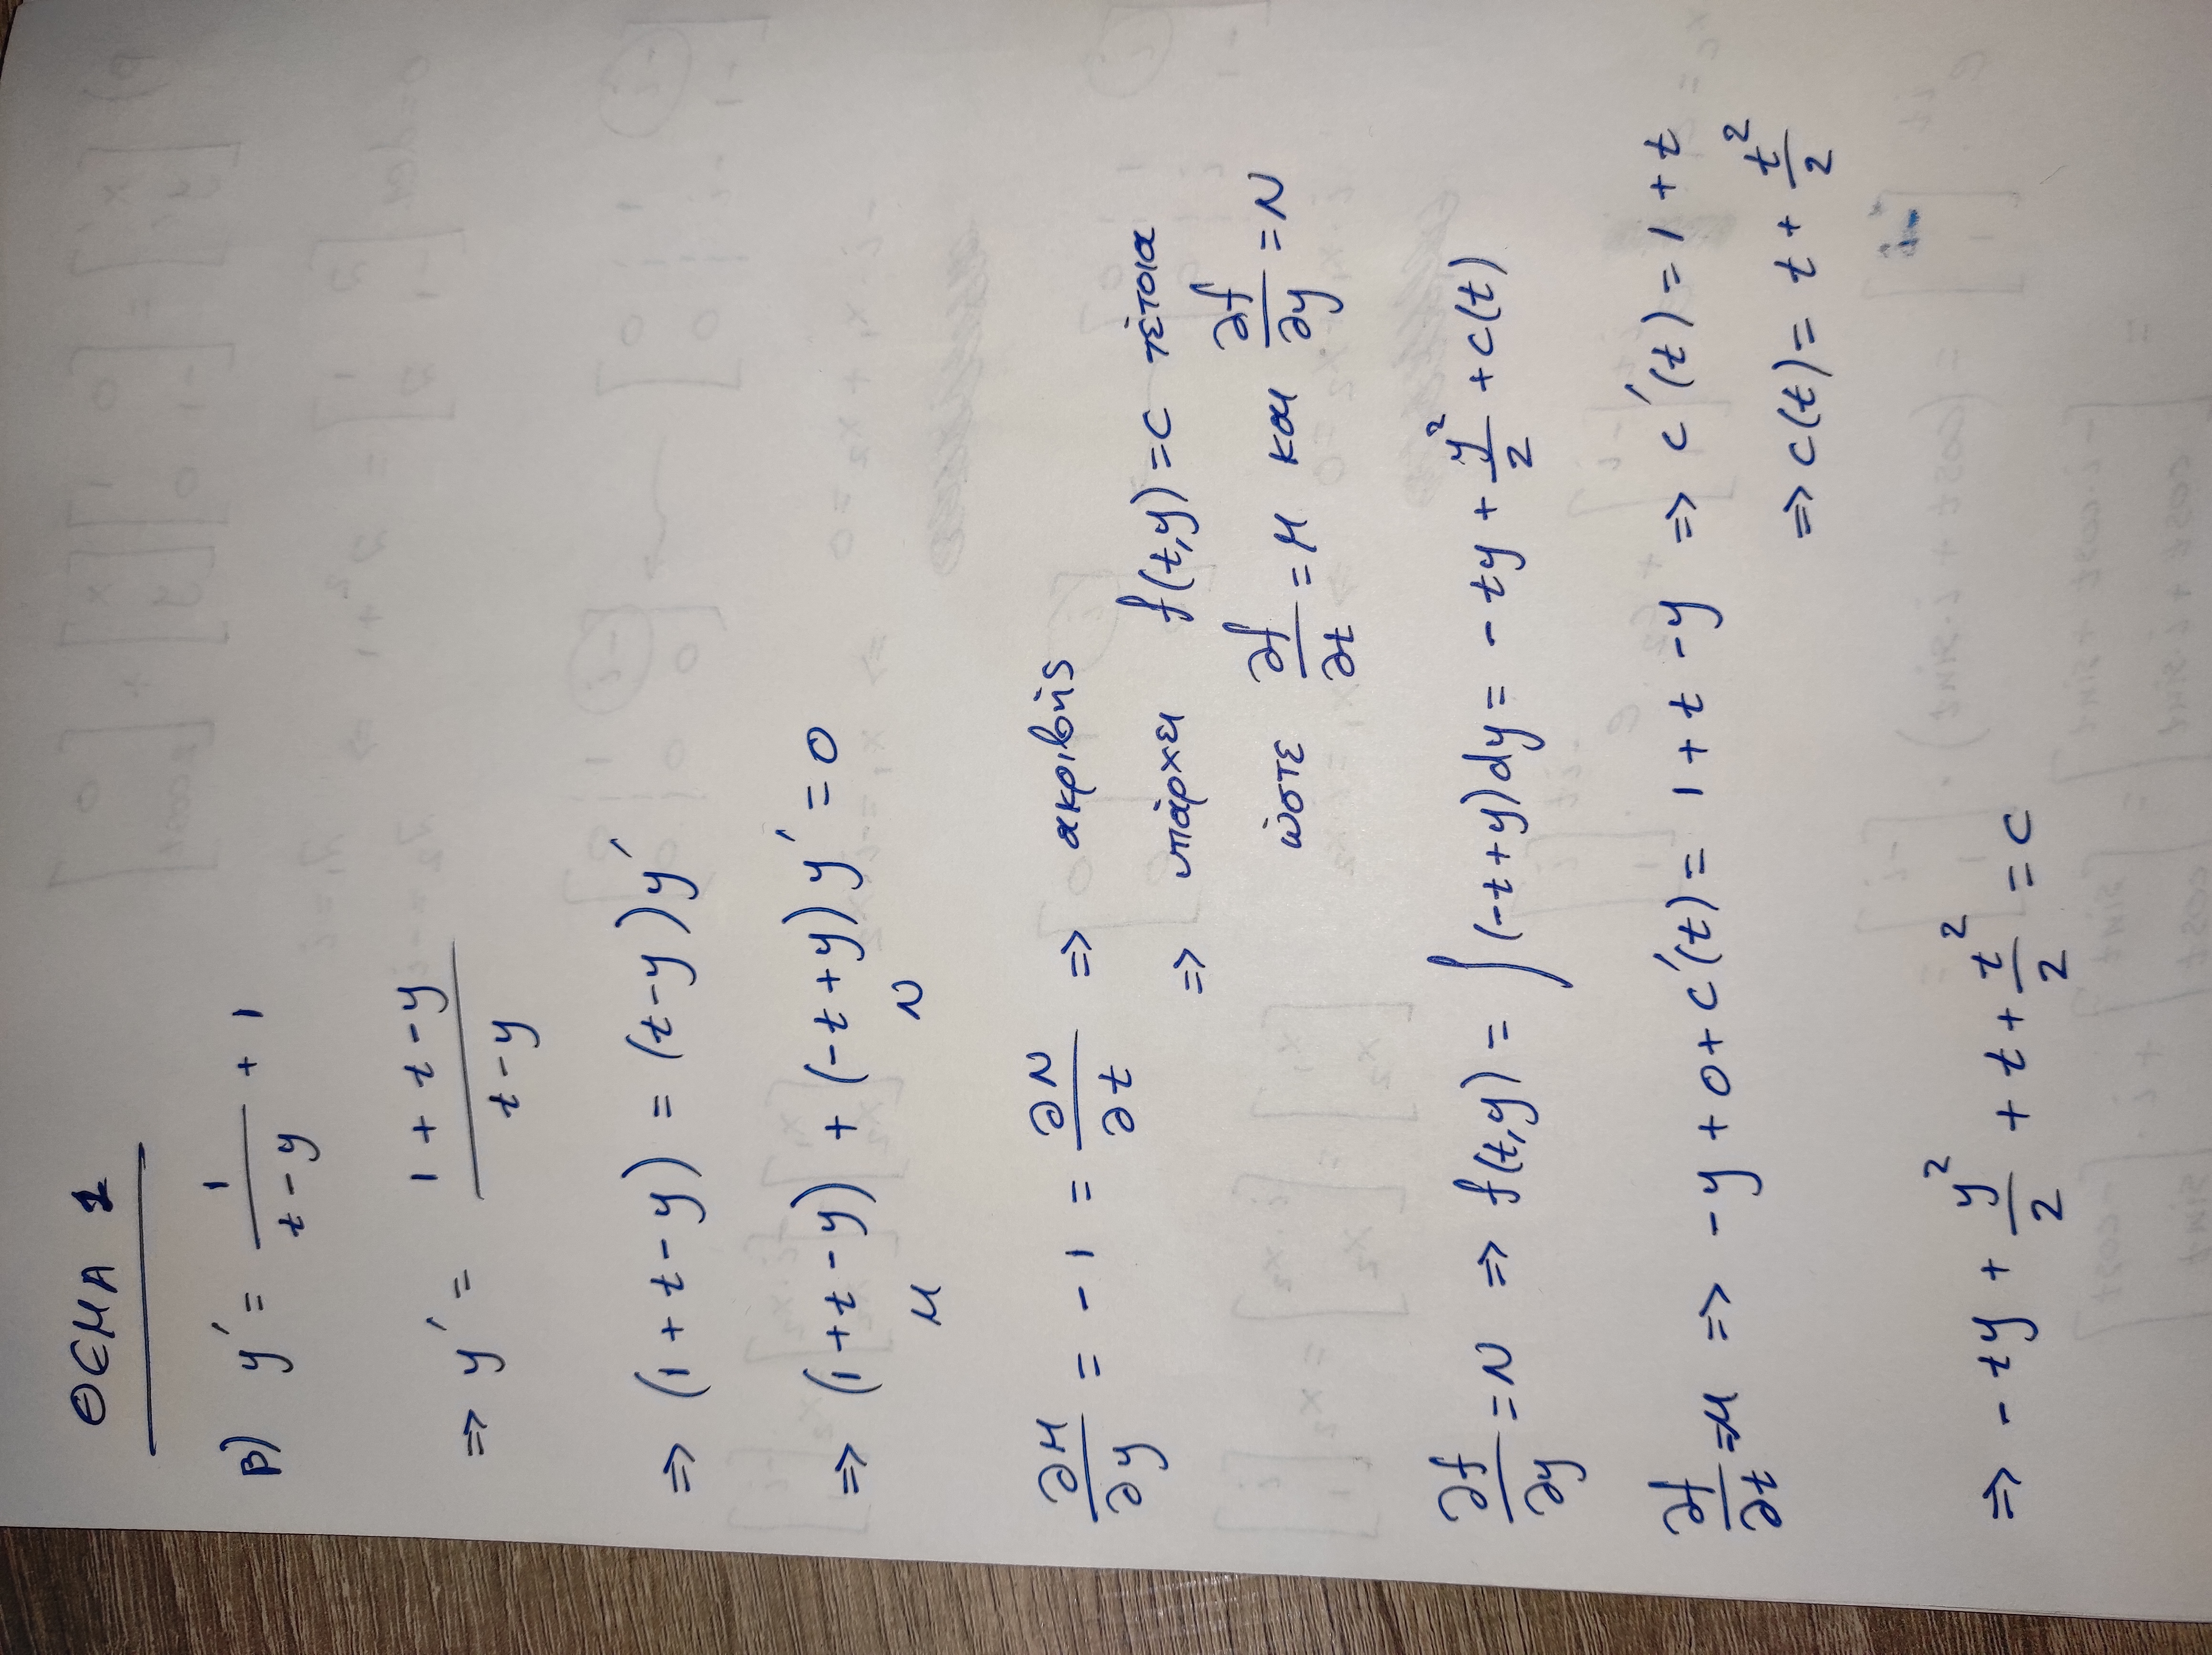 ΘΕΜΑ 1
β) y' = 1/(t-y) + 1
⇒ y' = (1+t-y)/(t-y)
⇒ (1+t-y) = (t-y)y'
⇒ (1+t-y) + (-t+y)y' = 0
M N
∂M/∂y = -1 = ∂N/∂t ⇒ ακριβής
⇒ υπάρχει f(t,y)=c τέτοια
ώστε ∂f/∂t = M και ∂f/∂y = N
∂f/∂y = N ⇒ f(t,y) = ∫(-t+y)dy = -ty + y²/2 + c(t)
∂f/∂t = M ⇒ -y+0+c'(t) = 1+t-y ⇒ c'(t) = 1+t
⇒ c(t) = t + t²/2
⇒ -ty + y²/2 + t + t²/2 = c